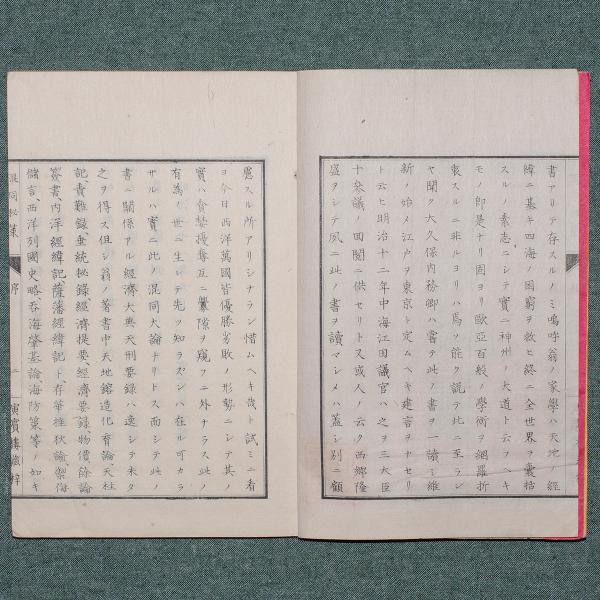 書アリテ存スルノミ嗚呼翁ノ家學ハ天地ノ經
緯ニ基キ四海ノ困窮ヲ救ヒ終ニ全世界ヲ囊括
スルノ素志ニシテ實ニ神州ノ大道ト云フヘキ
モノ即是ナリ固ヨリ歐亞百般ノ學術ヲ網羅折
衷スルニ非ルヨリハ焉ソ能ク説テ此ニ至ラン
ヤ聞ク大久保内務卿ハ嘗テ此ノ書ヲ一讀シ維
新ノ始メ江戸ヲ東京ト定ムヘキ建言ヲナセリ
ト云ヒ明治十二年中海江田議官ハ之ヲ三大臣
十參議ノ回閲ニ供セリト又或人ノ云ク西郷隆
盛ヲシテ夙ニ此ノ書ヲ讀マシメハ蓋シ別ニ顧
慮スル所アリシナラン惜ムヘキ哉ト試ミニ看
ヨ今日西洋萬國皆優勝劣敗ノ形勢ニシテ其ノ
實ハ貪婪攘奪互ニ釁隙ヲ窺フニ外ナラス此ノ
有爲ノ世ニ生レテ先ツ知ラスンハ在ル可カラ
サルハ實ニ此ノ混同大論ナリトス而シテ此ノ
書ニ關係アル經濟大典天刑要錄ハ逸シテ未タ
之ヲ得ス但シ翁ノ著書中天地鎔造化育論、天柱
記、責難錄、垂統祕錄、經濟提要、經濟要錄、物價餘論
簽書、内洋經緯記、薩藩經緯記ト、存華挫狄論、禦侮
儲言、西洋列國史略、呑海肇基論、海防策等ノ如キ
混同祕策
序
二